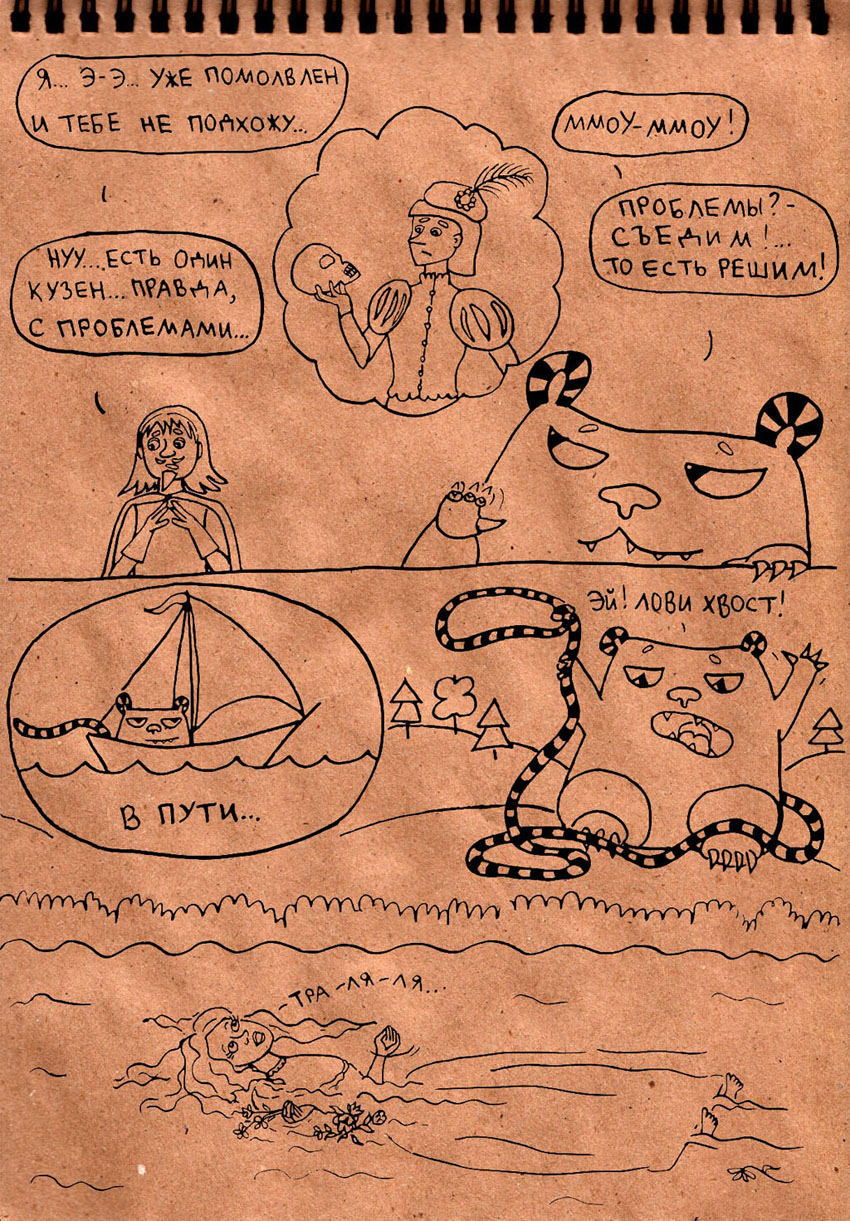 Я... Э-Э... УЖЕ ПОМОЛВЛЕН
И ТЕБЕ НЕ ПОДХОЖУ...
НУУ... ЕСТЬ ОДИН
КУЗЕН... ПРАВДА,
С ПРОБЛЕМАМИ...
ММОУ-ММОУ!
ПРОБЛЕМЫ?-
СЪЕДИМ!...
ТО ЕСТЬ РЕШИМ!
В ПУТИ...
ЭЙ! ЛОВИ ХВОСТ!
-ТРА-ЛЯ-ЛЯ...